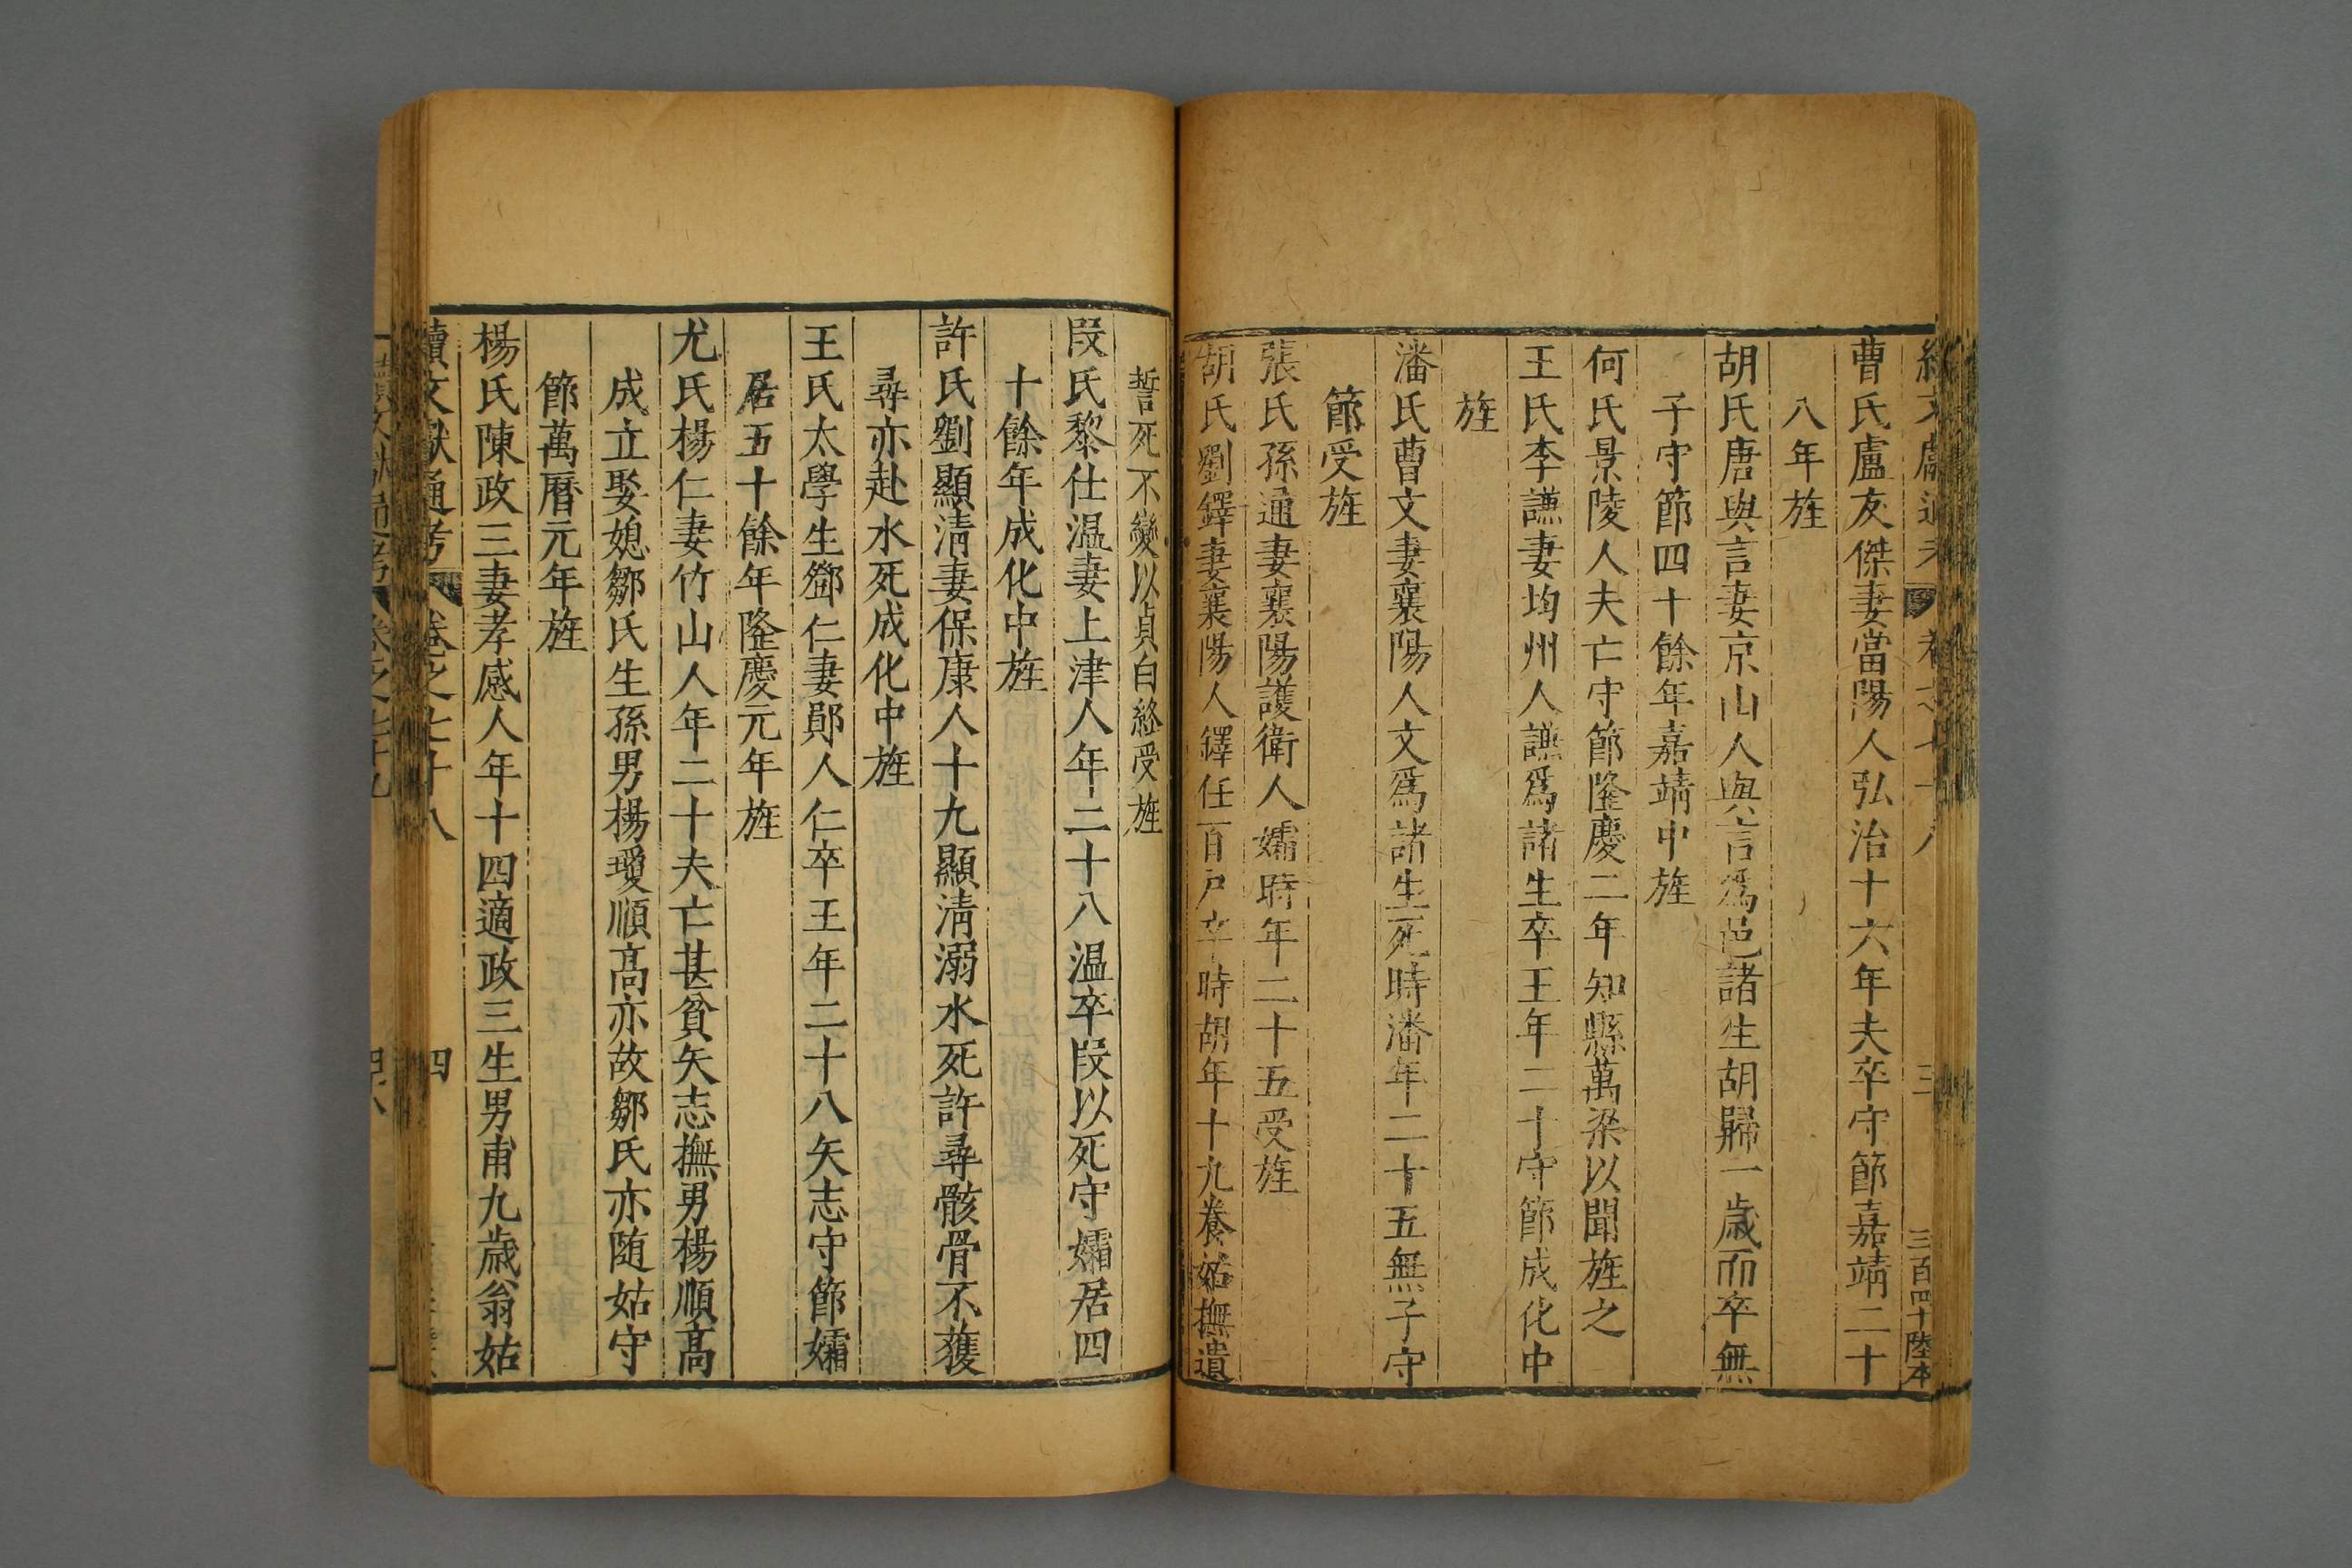 曹氏盧友傑妻當陽人弘治十六年夫卒守節嘉靖二十
八年旌
胡氏唐與言妻京山人與言爲邑諸生胡歸一歲而卒無
子守節四十餘年嘉靖中旌
何氏景陵人夫亡守節隆慶二年知縣萬梁以聞旌之
王氏李讌妻均州人讌爲諸生卒王年二十守節成化中
旌
潘氏曹文妻襄陽人文爲諸生死時潘年二十五無子守
節受旌
張氏孫通妻襄陽護衛人孀時年二十五受旌
胡氏劉鐸妻襄陽人鐸任百戶卒時胡年十九養姑撫遺
誓死不變以貞白終受旌
段氏黎仕溫妻上津人年二十八溫卒段以死守孀居四
十餘年成化中旌
許氏劉顯清妻保康人十九顯清溺水死許尋骸骨不獲
尋亦赴水死成化中旌
王氏太學生鄧仁妻鄖人仁卒王年二十八矢志守節孀
居五十餘年隆慶元年旌
尤氏楊仁妻竹山人年二十夫亡甚貧矢志撫男楊順高
成立娶媳鄒氏生孫男楊瓊順高亦故鄒氏亦随姑守
節萬曆元年旌
楊氏陳政三妻孝感人年十四適政三生男甫九歲翁姑
續文獻通考 卷之七十八 四